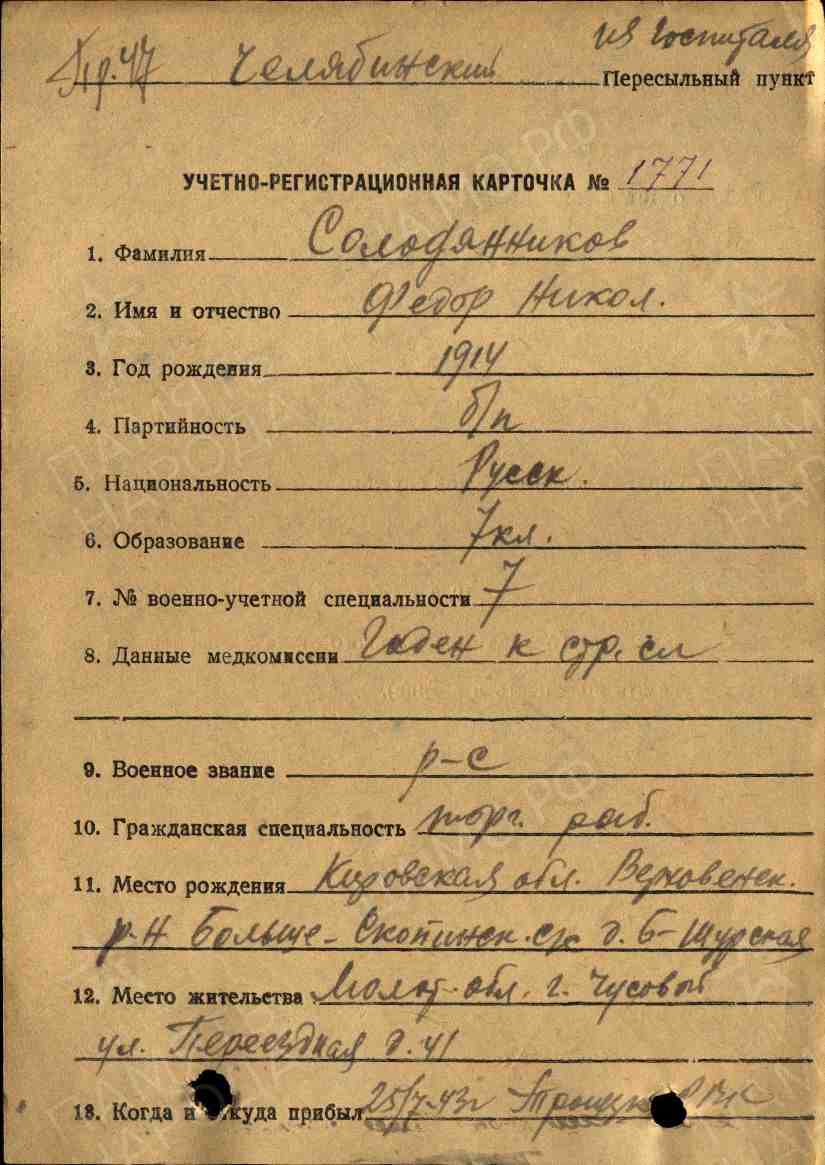 из госпиталя
Пр. 47 Челябинский Пересыльный пункт
УЧЕТНО-РЕГИСТРАЦИОННАЯ КАРТОЧКА № 1771
1. Фамилия Солодянников
2. Имя и отчество Федор Никол.
3. Год рождения 1914
4. Партийность б/п
5. Национальность Русск.
6. Образование 7 кл.
7. № военно-учетной специальности 7
8. Данные медкомиссии Годен к стр. сл
9. Военное звание р-с
10. Гражданская специальность торг. раб.
11. Место рождения Кировская обл. Верховенск.
р-н Больше-Скопинск. с/с д. Б-Шурская
12. Место жительства Молот. обл. г. Чусовый
ул. Переездная д. 41
13. Когда и куда прибыл 25/7-43г РВК